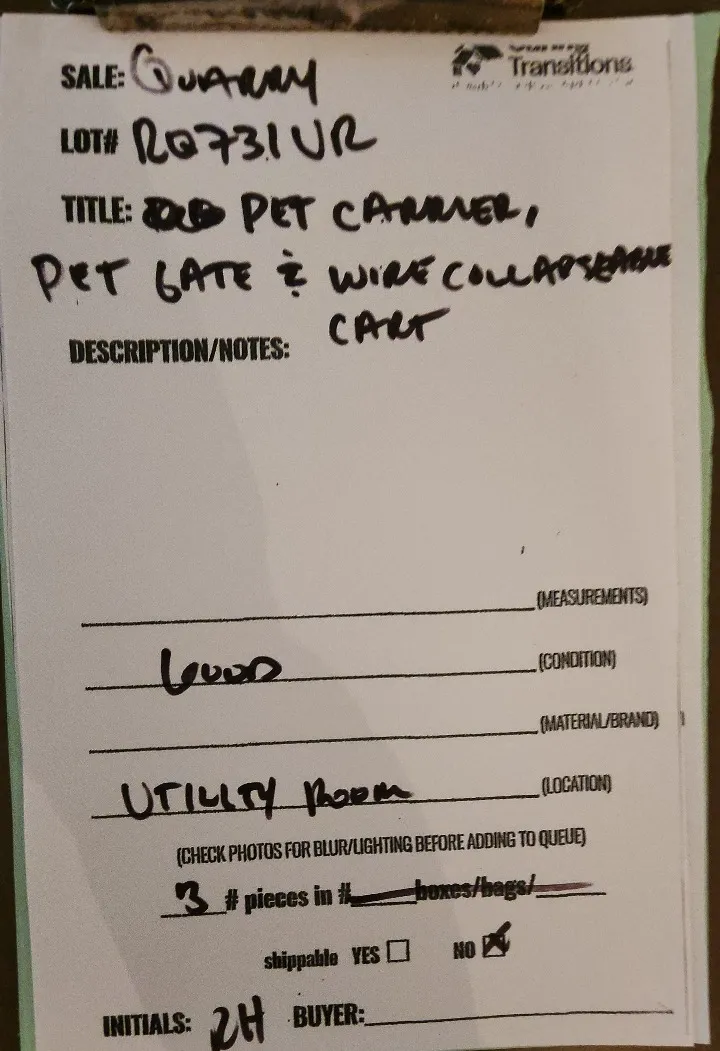 Transitions
SALE: QUARRY
LOT# RQ731UR
TITLE: PET CARRIER,
PET GATE & WIRE COLLAPSEABLE
CART
DESCRIPTION/NOTES:
(MEASUREMENTS)
GOOD (CONDITION)
(MATERIAL/BRAND)
UTILITY ROOM (LOCATION)
(CHECK PHOTOS FOR BLUR/LIGHTING BEFORE ADDING TO QUEUE)
3 # pieces in # boxes/bags/
shippable YES NO
INITIALS: RH BUYER: